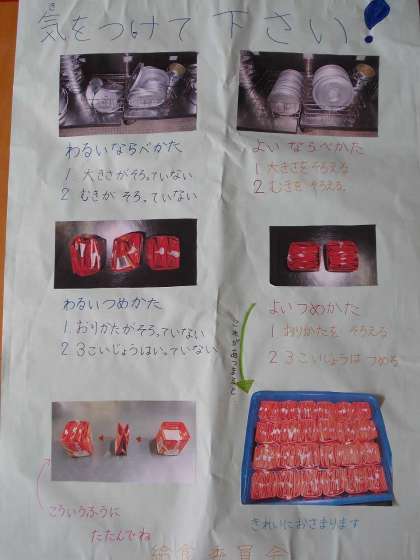 気をつけて下さい!
き
わるいならべかた
1 大きさがそろっていない
2 むきが そろっていない
よい ならべかた
1 大きさをそろえる
2 むきを そろえる
わるいつめかた
1.おりかたがそろっていない
2.3こいじょうはいっていない
よいつめかた
1 おりかたを そろえる
2 3こいじょうは つめる
これがあつまると
こういうふうに
たたんでね
きれいにおさまります
給食委員会